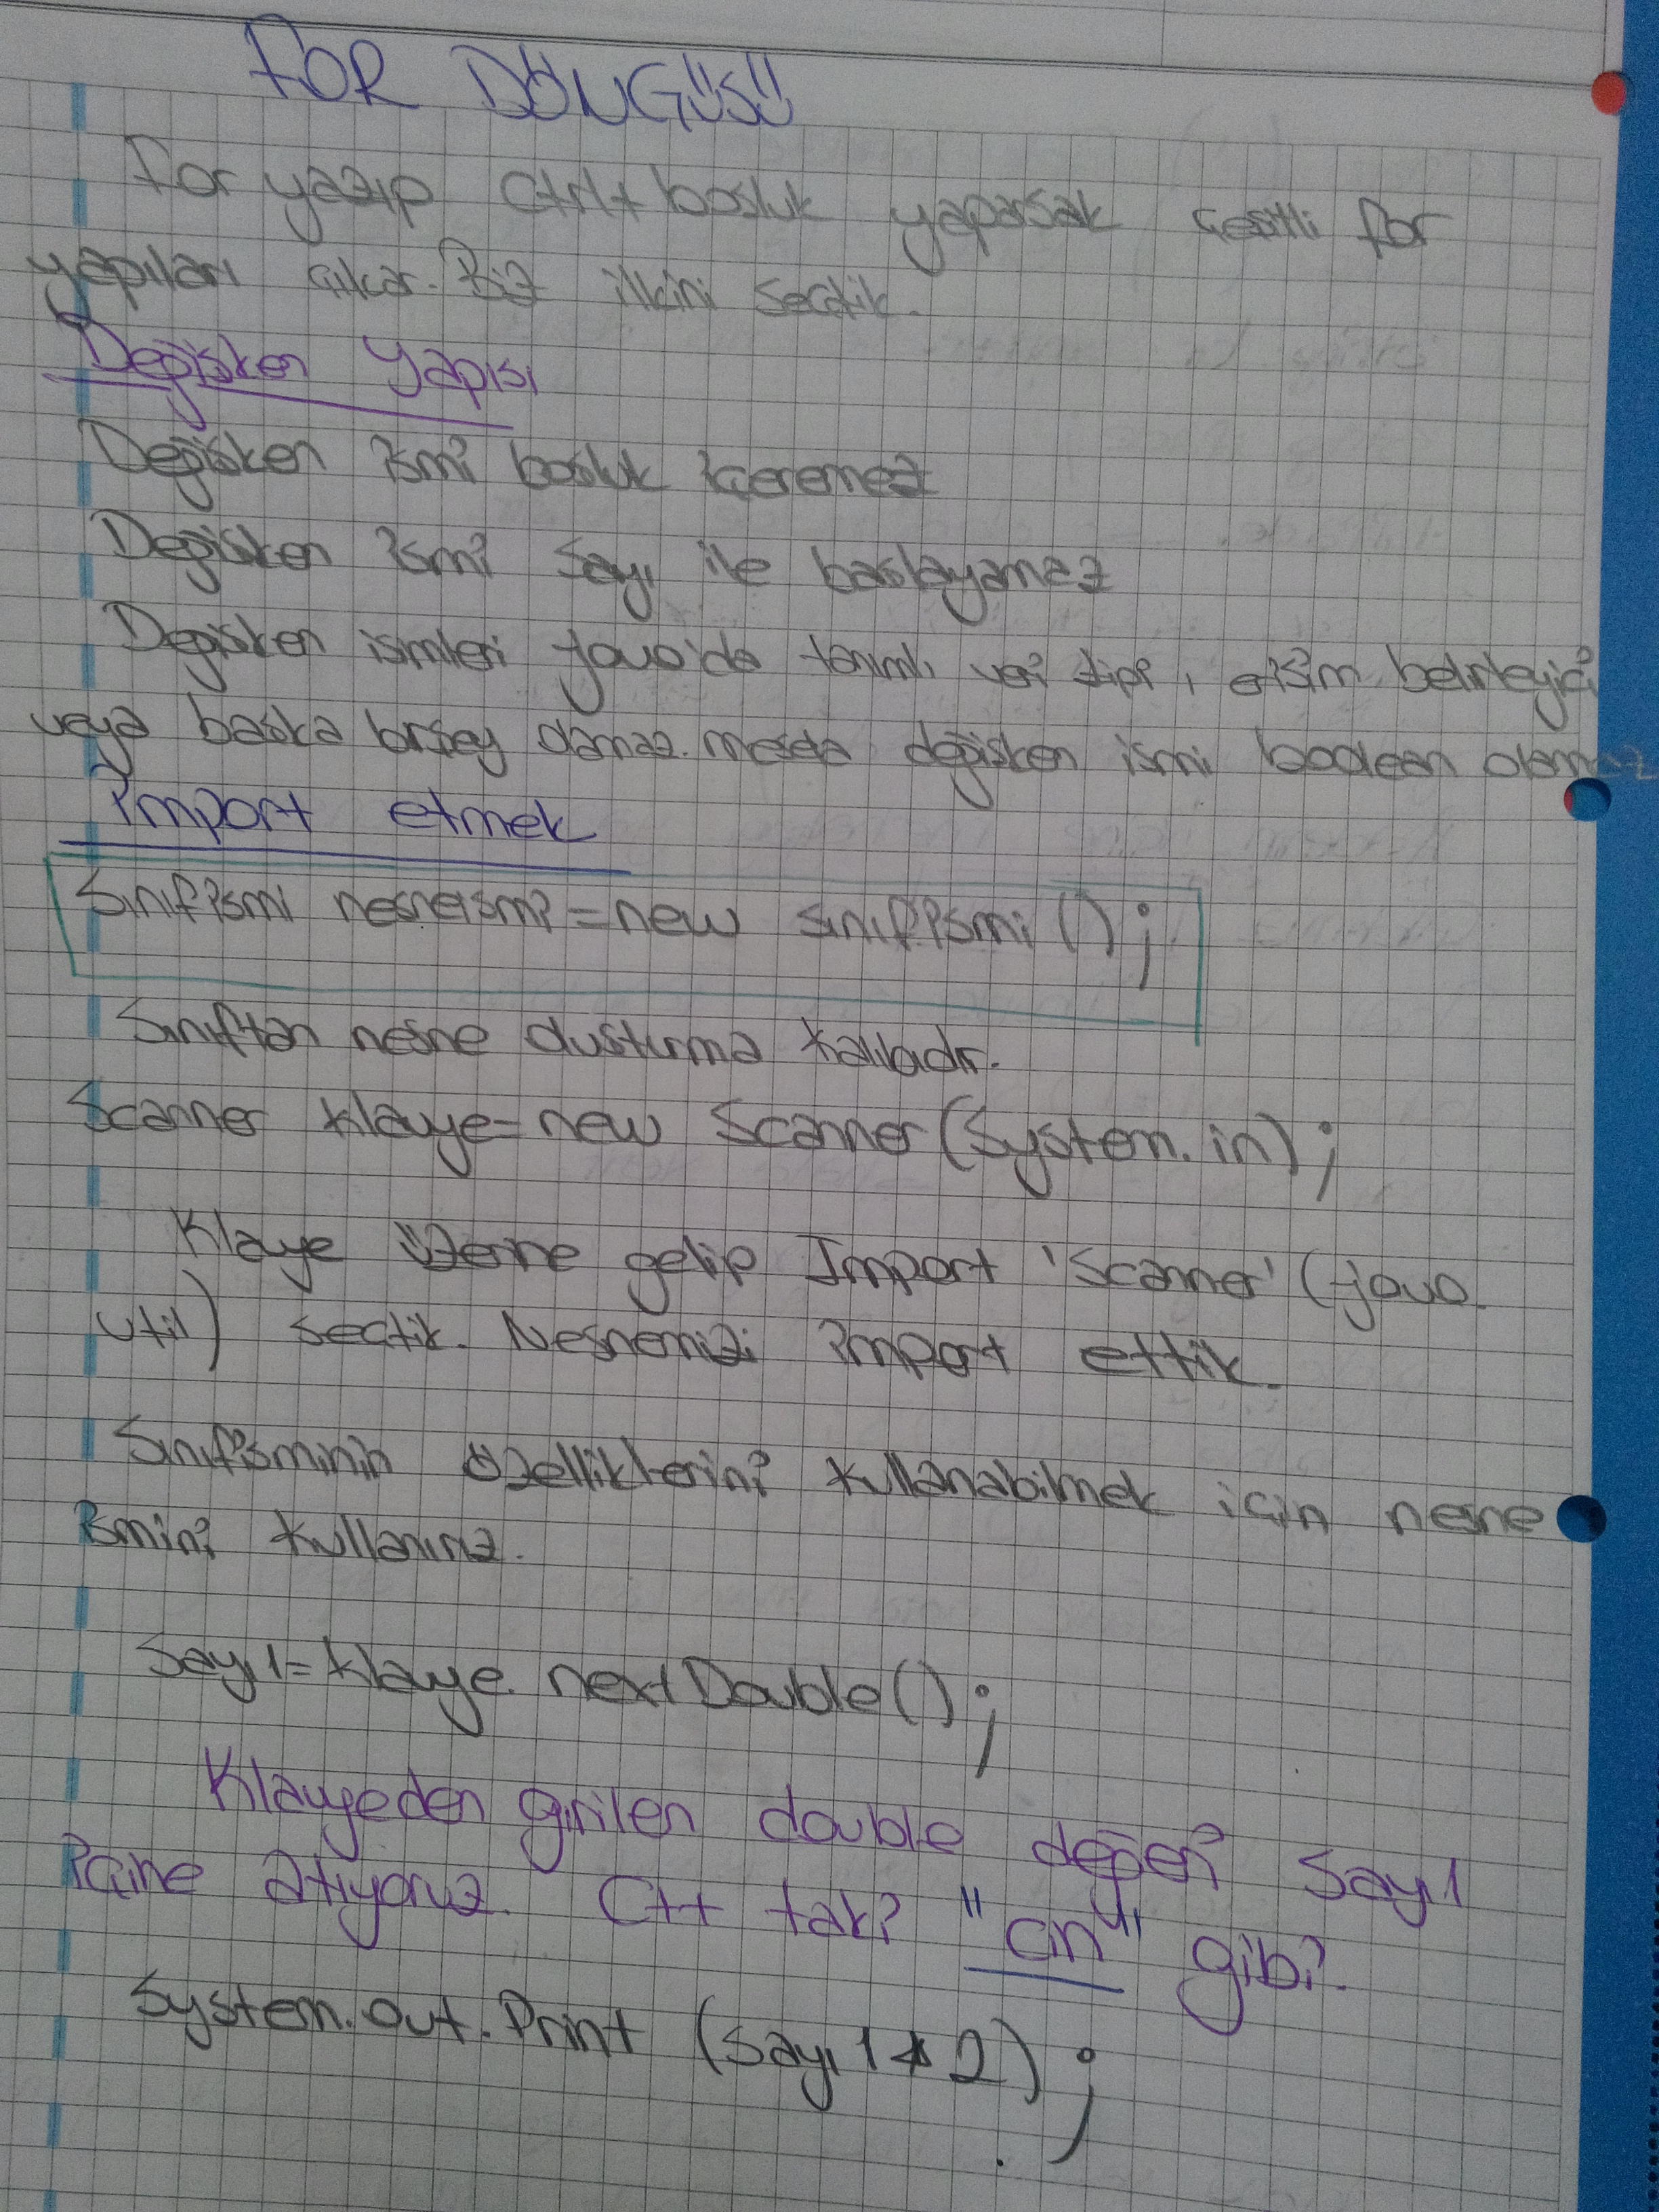 FOR DÖNGÜSÜ
For yazıp Ctrl+boşluk yaparsak çeşitli for
yapıları çıkar. Biz ilkini seçtik.
Değişken Yapısı
Değişken ismi boşluk içeremez
Değişken ismi sayı ile başlayamaz
Değişken isimleri java'da tanımlı veri tipi, erişim belirleyici
veya başka birşey olamaz. mesela değişken ismi boolean olamaz
import etmek
Sınıfismi nesneismi=new sınıfismi();
Sınıftan nesne oluşturma kalıbıdır.
Scanner klavye=new Scanner(System.in);
Klavye üzerine gelip Import 'Scanner' (java.
util) seçtik. Nesnemizi import ettik.
Sınıfisminin özelliklerini kullanabilmek için nesne
ismini kullanırız.
Sayı1=klavye.nextDouble();
Klavyeden girilen double değeri sayı1
içine atıyoruz. C++ taki "cin" gibi.
System.out.Print (sayı1*2);